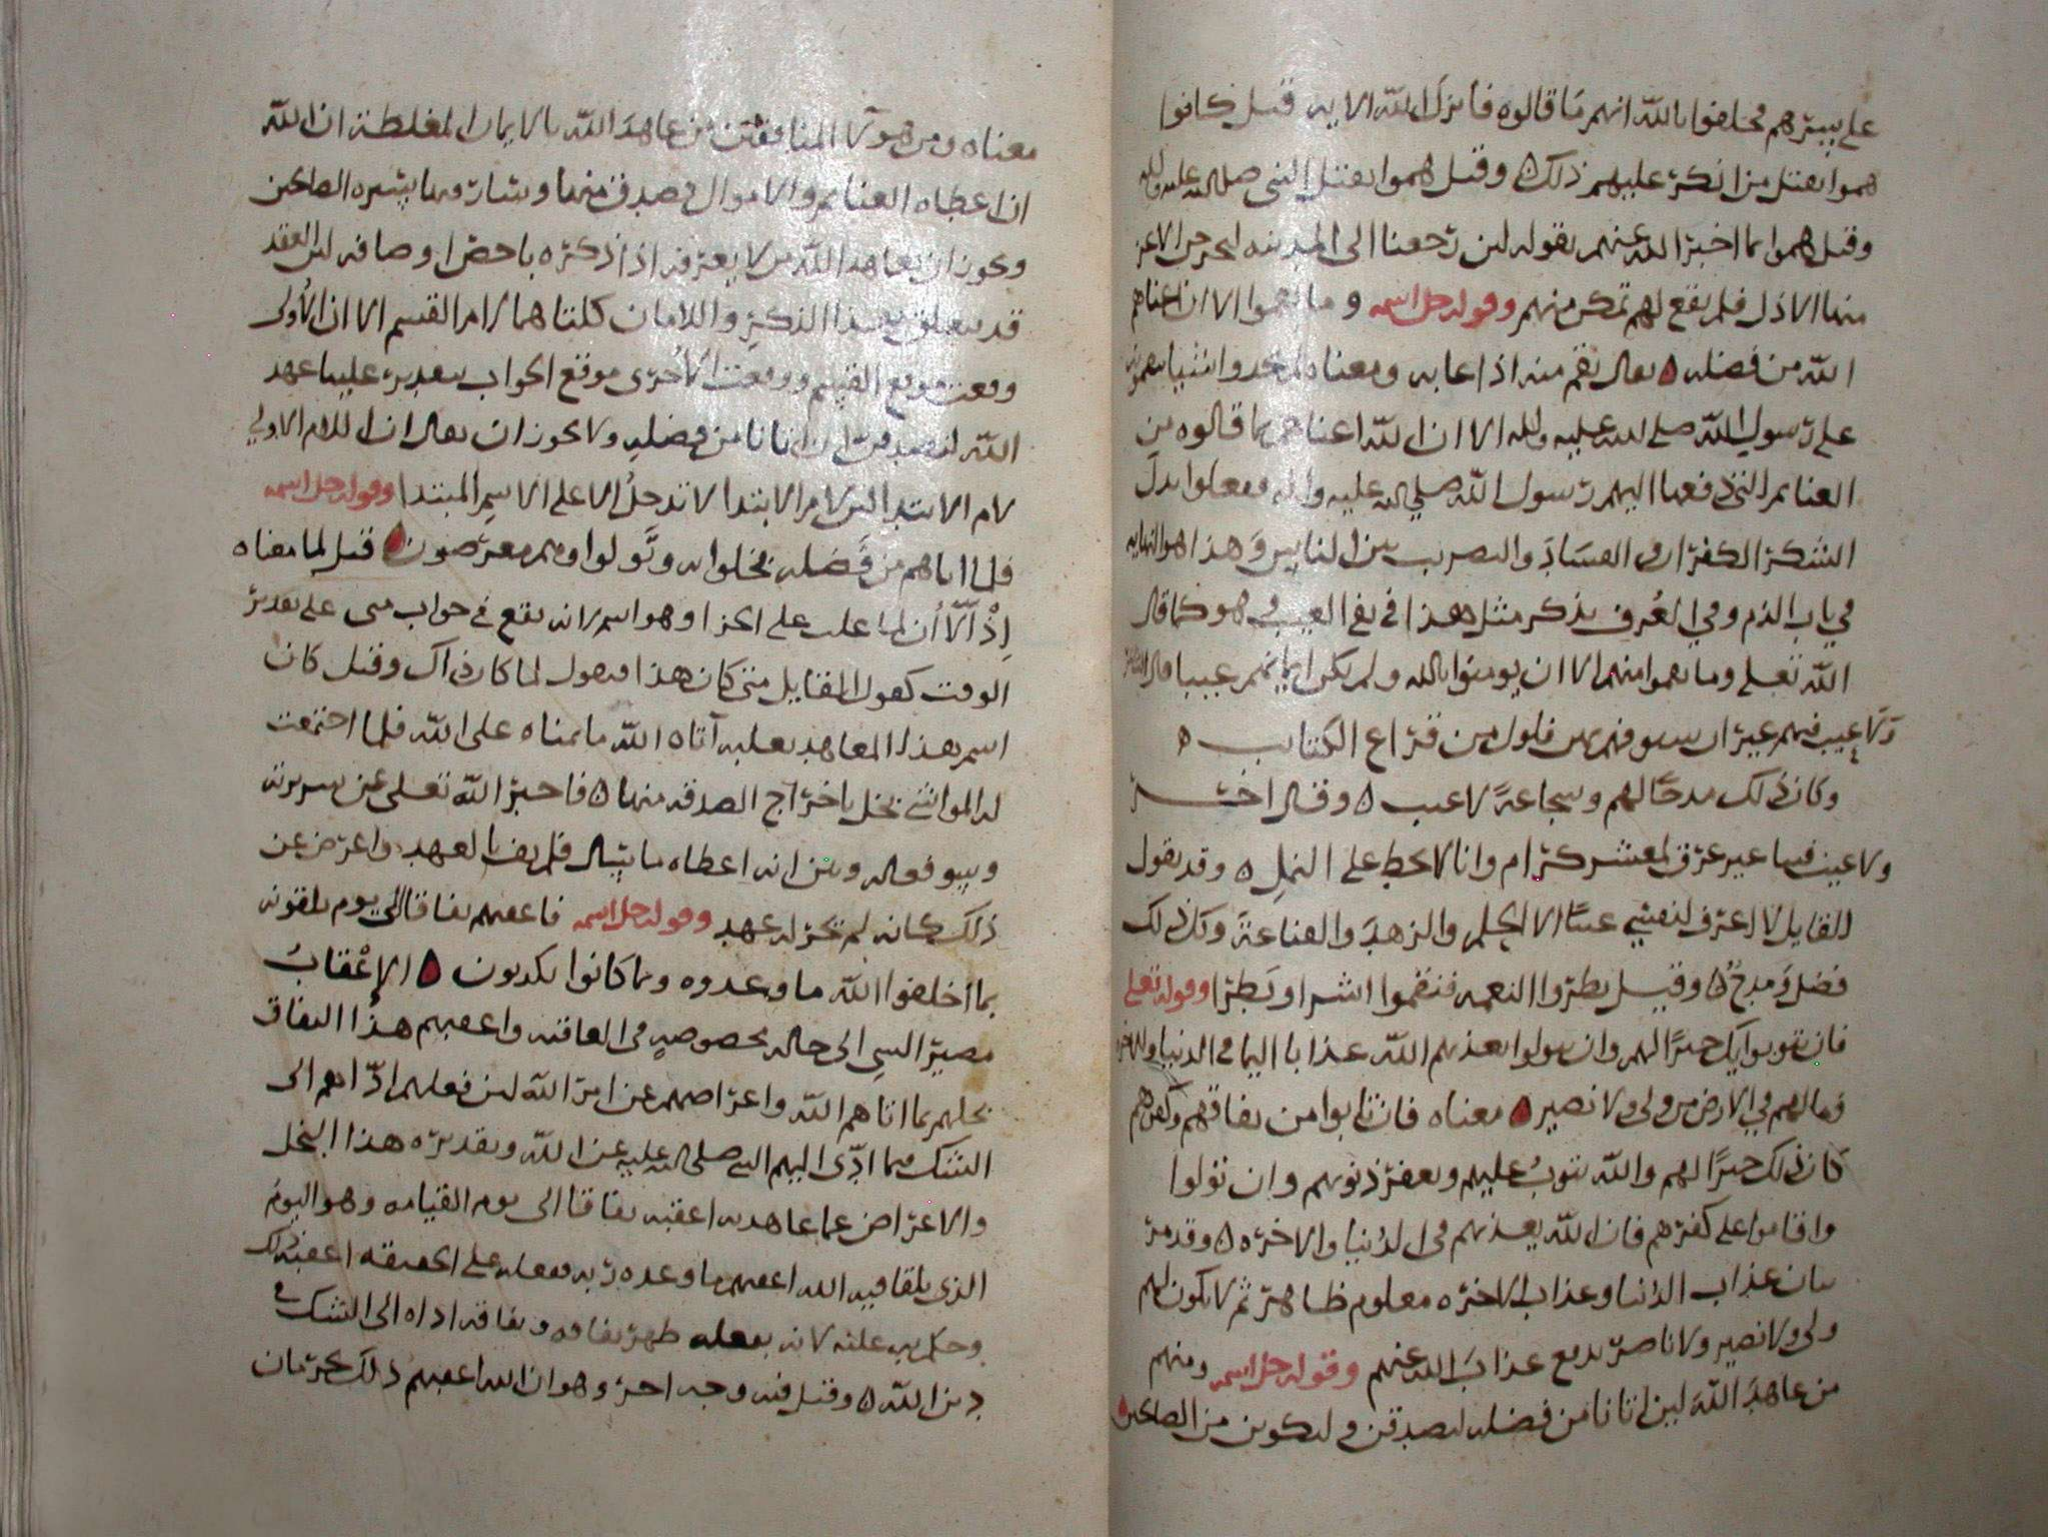 على بيترهم فحلفوا بالله انهم ما قالوه فانزل الله الايه وقيل كانوا
هموا بقتل من انكر عليهم ذلك ه وقيل هموا بقتل النبى صلى الله عليه واله
وقيل هموا بما اخبر الله عنهم بقوله لين رجعنا الى المدينه ليخرجن الاعز
منها الاذل فلم يقع لهم تمكن منهم وقوله جل اسمه وما نقموا الا ان اغناهم
الله من فضله ه يقال نقم منه اذا عابه ومعناه لم يجدوا شيا ينقمونه
على رسول الله صلى الله عليه واله الا ان الله اغناهم بما قالوه من
الغنايم التى دفعها اليهم رسول الله صلى الله عليه واله ففعلوا بدل
الشكر الكفران والفساد والتضريب بين الناس وهذا هو النهايه
في باب الذم وفي العرف يذكر مثل هذا في نفي العيب وهو كما قال
الله تعلى وما نقموا منهم الا ان يومنوا بالله ولم يكن ايمانهم عيبا قال الشاعر
ولا عيب فيهم غير ان سيوفهم بهن فلول من قراع الكتايب ه
وكان ذلك مدحًا لهم وشجاعةً لا عيب ه وقال اخر
ولا عيب فينا غير عرق لمعشر كرام وانا لا نحط على النمل ه وقد يقول
القايل لا اعرف لنفسي عيبًا الا الحلم والزهدَ والقناعةَ وكل ذلك
فضل ومدح ه وقيل بطروا النعمه فنقموا اشرا وبَطرًا وقوله تعلى
فان يتوبوا يك خيرًا لهم وان يتولوا يعذبهم الله عذابا اليما في الدنيا والاخره
وما لهم في الارض من ولى ولا نصير ه معناه فان تابوا من نفاقهم وكفرهم
كان ذلك خيرًا لهم والله يتوبُ عليهم ويغفر ذنوبهم وان تولوا
واقاموا على كفرهم فان الله يعذبهم في الدنيا والاخره ه وقد مر
بيان عذاب الدنيا وعذاب الاخره معلوم ظاهر ثم لا يكون لهم
ولى ولا نصير ولا ناصر يدفع عذابَ الله عنهم وقوله جل اسمه ومنهم
من عاهدَ اللهَ لين اتانا من فضله لنصدقن ولنكونن من الصالحين ه
معناه ومن هولآ المنافقين من عاهدَ الله بالايمان المغلظة ان الله
ان اعطاه الغنايم والاموال تصدق منها وسار فيها بسيره الصالحين
ويجوز ان يعاهد الله من لا يعرفه اذا ذكره باحضار وصافه لان العقد
قد يتعلق بهذا الذكرِ واللامان كلتاهما لام القسم الا ان الأولى
وقعت موقع القسم ووقعت الأخرى موقع الجواب بتقدير علينا عهد
الله لنصدقن ان اتانا من فضلهِ ولا يجوز ان يقال ان اللام الاولي
لام الابتدا لان لام الابتدا لا تدخلُ الا على الاسمِ المبتدا وقوله جل اسمه
فلما اتاهم من فَضله بخلوا به وتَّولوا وهم معرضون ه قيل لما معناه
إِذْ الّا أن لما غلب على الجزا وهو اسم لانه يقع في جواب متى على تقدير
الوقت كقول القايل متى كان هذا فيقول لما كان ذاك وقيل كان
اسم هذا المعاهد ثعلبه آتاه الله ما تمناه على الله فلما اجتمعت
له المواشي بخل باخراج الصدقه منها ه فاخبر الله تعلى عن سريرته
وسو فعاله وبين انه اعطاه ما سال فلم يف بالعهد واعرض عن
ذلك كانه لم يجر له عهد وقوله جل اسمه فاعقبهم نفاقا الى يوم يلقونه
بما اخلفوا الله ما وعدوه وبما كانوا يكذبون ه الإعْقابُ
مصير الشى الى حاله مخصوصهٍ في العاقبه واعقبهم هذا النفاق
بخلهم بما اتاهم الله واعراضهم عن امر الله لان فعلهم ادّاهم الى
الشك فيما ادّى اليهم النبى صلى الله عليه عن الله وتقديره هذا البخل
والاعراض عما عاهد به اعقبه نفاقا الى يوم القيامه وهو اليوم
الذي يلقا فيه الله اعقبهم ما وعده ربه ففعله على الحقيقه اعقبه ذلك
وحكم به عليه لانه بفعله ظهر نفاقه ونفاقه اداه الى الشك في
دين الله ه وقيل فيه وجه اخر وهو ان الله اعقبهم ذلك بحرمان